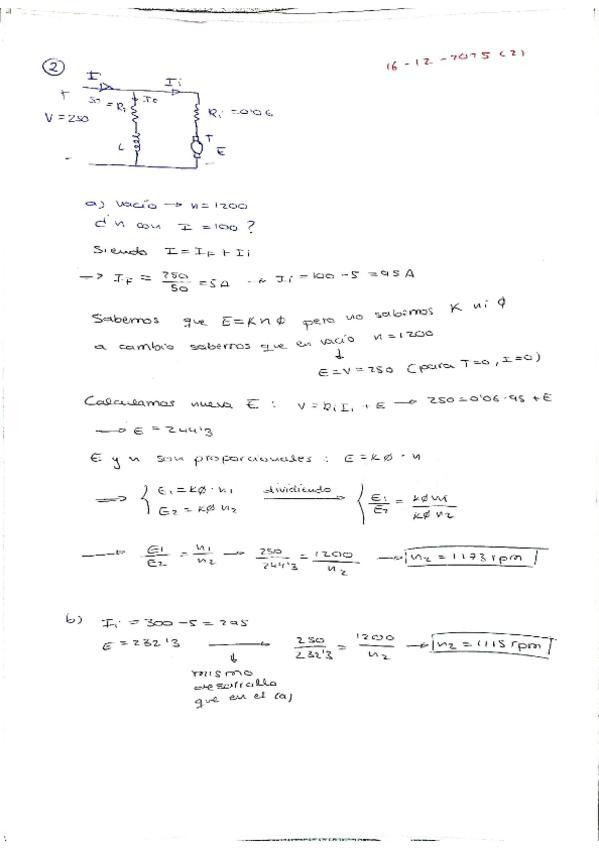 16-12-2015 (2)
2
I Ii
+ 50 = Ri Ie
V = 250 Ri = 0'06
L T
E
-
a) vacío → n = 1200
d' n con I = 100 ?
Siendo I = IF + Ii
→ IF = 250/50 = 5A Ii = 100 - 5 = 95 A
Sabemos que E = K n ø pero no sabemos K ni ø
a cambio sabemos que en vacío n = 1200
↓
E = V = 250 (para T=0, I=0)
Calculamos nueva E : V = Ri Ii + E → 250 = 0'06 · 95 + E
→ E = 244'3
E y n son proporcionales : E = Kø · n
⇒ { E1 = Kø · n1 dividiendo → { E1/E2 = Kø n1/Kø n2
E2 = Kø n2
→ E1/E2 = n1/n2 → 250/244'3 = 1200/n2 → n2 = 1173 rpm
b) Ii = 300 - 5 = 295
E = 232'3 → 250/232'3 = 1200/n2 → n2 = 1115 rpm
↓
mismo
desarrollo
que en el (a)